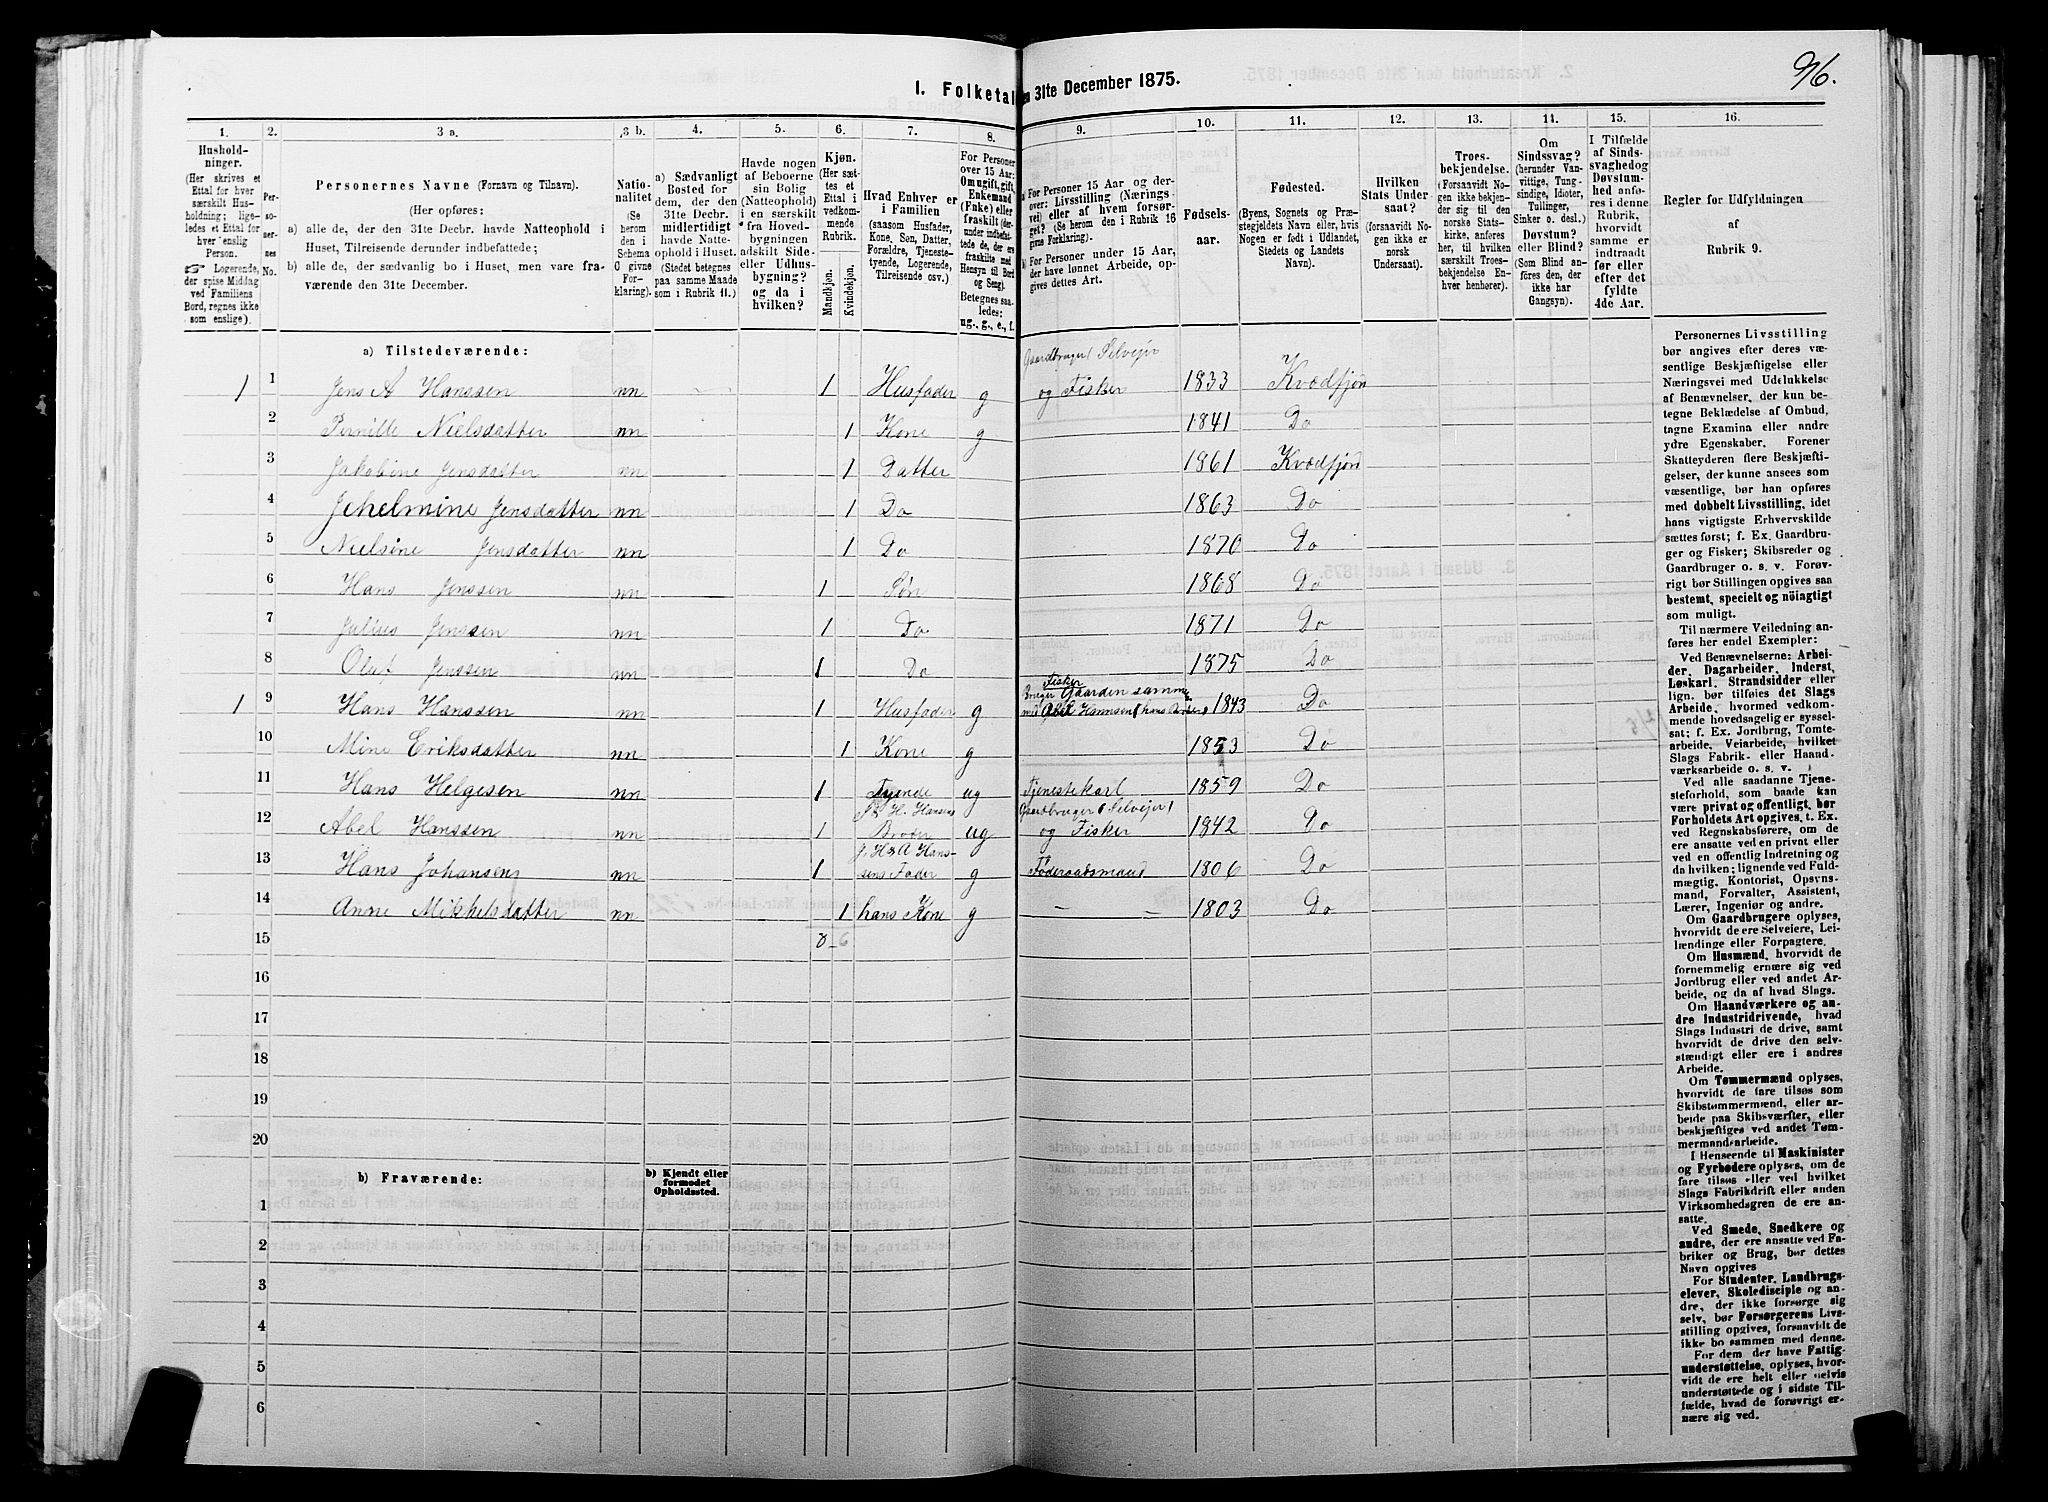 96.
I. Folketal
n 31te December 1875.
1.
2.
3 a.
3 b.
4.
5.
6.
7.
8.
9.
10.
11.
12.
13.
14.
15.
16.
Hushold-
ninger.
(Her skrives et
Ettal for hver
særskilt Hus-
holdning; lige-
ledes et Ettal for
hver enslig
Person.
☞ Logerende,
der spise Middag
ved Familiens
Bord, regnes ikke
som enslige).
Per-
so-
ner-
nes
No.
Personernes Navne (Fornavn og Tilnavn).
(Her opføres:
a) alle de, der den 31te Decbr. havde Natteophold i
Huset, Tilreisende derunder indbefattede;
b) alle de, der sædvanlig bo i Huset, men vare fra-
værende den 31te December.
Natio-
nalitet
(Se
herom
den i
Schema
C givne
For-
klaring).
a) Sædvanligt
Bosted for
dem, der den
31te Decbr.
midlertidigt
havde Natte-
ophold i Huset.
(Stedet betegnes
paa samme Maade
som i Rubrik 11.)
Havde nogen
af Beboerne
sin Bolig
(Natteophold)
i en særskilt
fra Hoved-
bygningen
adskilt Side-
eller Udhus-
bygning?
og da i
hvilken?
Kjøn.
(Her sæt-
tes et
Ettal i
vedkom-
mende
Rubrik.
Mandkjøn.
Kvindekjøn.
Hvad Enhver er
i Familien
(saasom Husfader,
Kone, Søn, Datter,
Forældre, Tjeneste-
tyende, Logerende,
Tilreisende osv.)
For Personer
over 15 Aar:
Om ugift, gift,
Enkemand
(Enke) eller
fraskilt
Betegnes saa-
ledes:
ug., g., e., f.
a) For Personer 15 Aar og der-
over: Livsstilling (Nærings-
vei) eller af hvem forsør-
get? (Se herom den i Rubrik 16
givne Forklaring).
b) For Personer under 15 Aar,
der have lønnet Arbeide, op-
gives dettes Art.
Fødsels-
aar.
Fødested.
(Byens, Sognets og Præ-
stegjeldets Navn eller, hvis
Nogen er født i Udlandet,
Stedets og Landets
Navn).
Hvilken
Stats Under-
saat?
(forsaavidt No-
gen ikke er
norsk
Undersaat).
Troes-
bekjendelse.
(Forsaavidt No-
gen ikke bekjen-
der sig til den
norske Stats-
kirke, anføres
her, til hvilken
særskilt Troes-
bekjendelse En-
hver henhører).
Om
Sindssvag?
(herunder Van-
vittige, Tung-
sindige, Idioter,
Tullinger,
Sinker o. desl.)
Døvstum?
eller Blind?
(Som Blind an-
føres den, der
ikke har
Gangsyn).
I Tilfælde
af Sinds-
svaghed og
Døvstum-
hed anfø-
res i denne
Rubrik,
hvorvidt
samme er
indtraadt
før eller
efter det
fyldte
4de Aar.
Regler for Udfyldningen
af
Rubrik 9.
a) Tilstedeværende:
Gaardbruger Selveier
1 1 Jens A Hanssen nn 1 Husfader g og Fisker 1833 Kvædfjord
2 Pernille Nielsdatter nn 1 Kone g 1841 Do
3 Jakobine Jensdatter nn 1 Datter 1861 Kvædfjord
4 Jehelmine Jensdatter nn 1 Do 1863 Do
5 Nielsine Jensdatter nn 1 Do 1870 Do
6 Hans Jenssen nn 1 Søn 1868 Do
7 Julius Jenssen nn 1 Do 1871 Do
8 Oluf Jenssen nn 1 Do 1875 Do
Fisker
Bruger Gaarden samme
1 9 Hans Hanssen nn 1 Husfader g med Abel Hannsen 1843 Do
10 Mine Eriksdatter nn 1 Kone g 1853 Do
11 Hans Helgesen nn 1 Tyende ug Tjenestekarl 1859 Do
H. Hansens Gaardbruger (Selveier)
12 Abel Hanssen nn 1 Broder ug og Fisker 1842 Do
J, H & A Hans-
13 Hans Johansens nn 1 sens Fader g Føderaadsmand 1806 Do
14 Anne Mikkelsdatter nn 1 hans Kone g — — 1803 Do
15 8 - 6
16
17
18
19
20
b) Fraværende:
b) Kjendt eller
formodet
Opholdssted.
1
2
3
4
5
6
Personernes Livsstilling
bør angives efter deres væ-
sentlige Beskjæftigelse eller
Næringsvei med Udelukkelse
af Benævnelser, der kun be-
tegne Beklædelse af Ombud,
tagne Examina eller andre
ydre Egenskaber. Forener
Skatteyderen flere Beskjæfti-
gelser, der kunne ansees som
væsentlige, bør han opføres
med dobbelt Livsstilling, idet
hans vigtigste Erhvervskilde
sættes først; f. Ex. Gaardbru-
ger og Fisker; Skibsreder og
Gaardbruger o. s. v. Forøv-
rigt bør Stillingen opgives saa
bestemt, specielt og nöiagtigt
som muligt.
Til nærmere Veiledning an-
føres her endel Exempler:
Ved Benævnelserne: Arbei-
der, Dagarbeider, Inderst,
Løskarl, Strandsidder eller
lign. bør tilføies det Slags
Arbeide, hvormed vedkom-
mende hovedsagelig er syssel-
sat; f. Ex. Jordbrug, Tomte-
arbeide, Veiarbeide, hvilket
Slags Fabrik- eller Haand-
værksarbeide o. s. v.
Ved alle saadanne Tjene-
steforhold, som baade kan
være privat og offentligt, bør
Forholdets Art opgives, t. Ex.
ved Regnskabsførere, om de
ere ansatte ved en privat eller
ved en offentlig Indretning og
da hvilken; lignende ved Fuld-
mægtig, Kontorist, Opsyns-
mand, Forvalter, Assistent,
Lærer, Ingeniør og andre.
Om Gaardbrugere oplyses,
hvorvidt de ere Selveiere, Lei-
lændinge eller Forpagtere.
Om Husmænd, hvorvidt de
fornemmelig ernære sig ved
Jordbrug eller ved andet Ar-
beide, og da af hvad Slags.
Om Haandværkere og an-
dre Industridrivende, hvad
Slags Industri de drive, samt
hvorvidt de drive den selv-
stændigt eller ere i andres
Arbeide.
Om Tømmermænd oplyses,
hvorvidt de fare tilsøs som
Skibstømmermænd, eller ar-
beide paa Skibsværfter, eller
beskjæftiges ved andet Tøm-
mermandsarbeide.
I Henseende til Maskinister
og Fyrbødere oplyses, om de
fare tilsøs eller ved hvilket
Slags Fabrikdrift eller anden
Virksomhedsgren de ere an-
satte.
Ved Smede, Snedkere og
andre, der ere ansatte ved Fa-
briker og Brug, bør dettes
Navn opgives
For Studenter, Landbrugs-
elever, Skoledisciple og an-
dre, der ikke forsørge sig
selv, bør Forsørgerens Livs-
stilling opgives, forsaavidt de
ikke bo sammen med denne.
For dem, der have Fattig-
understøttelse, oplyses, hvor-
vidt de ere helt eller delvis
understøttede og i sidste Til-
fælde, hvad de forøvrigt er-
nære sig ved.